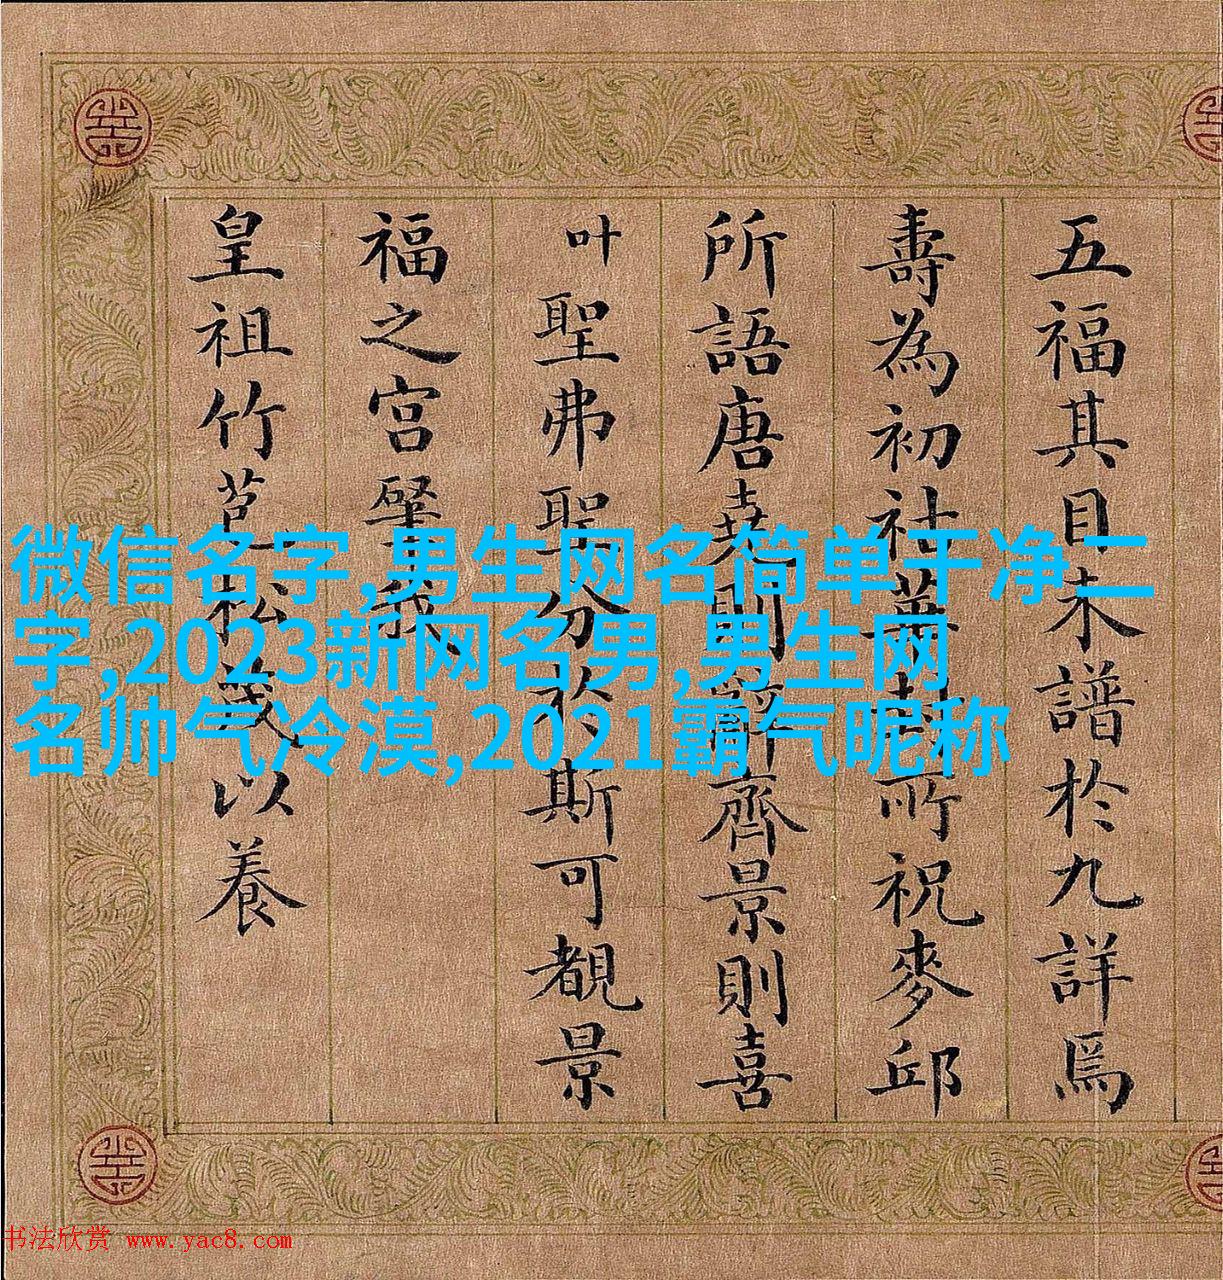 五福其目未譜於九詳爲
壽為初社華封所祝麥邱
所語唐堯則辭齊景則喜
叶聖弗聖分於斯可覩景
福之宮肇我
皇祖竹苞松茂以養
微信名字,男生网名简单干净二
字,2023新网名男,男生网
名帅气冷漠,2021霸气昵称
书法欣赏 www.yac8.com